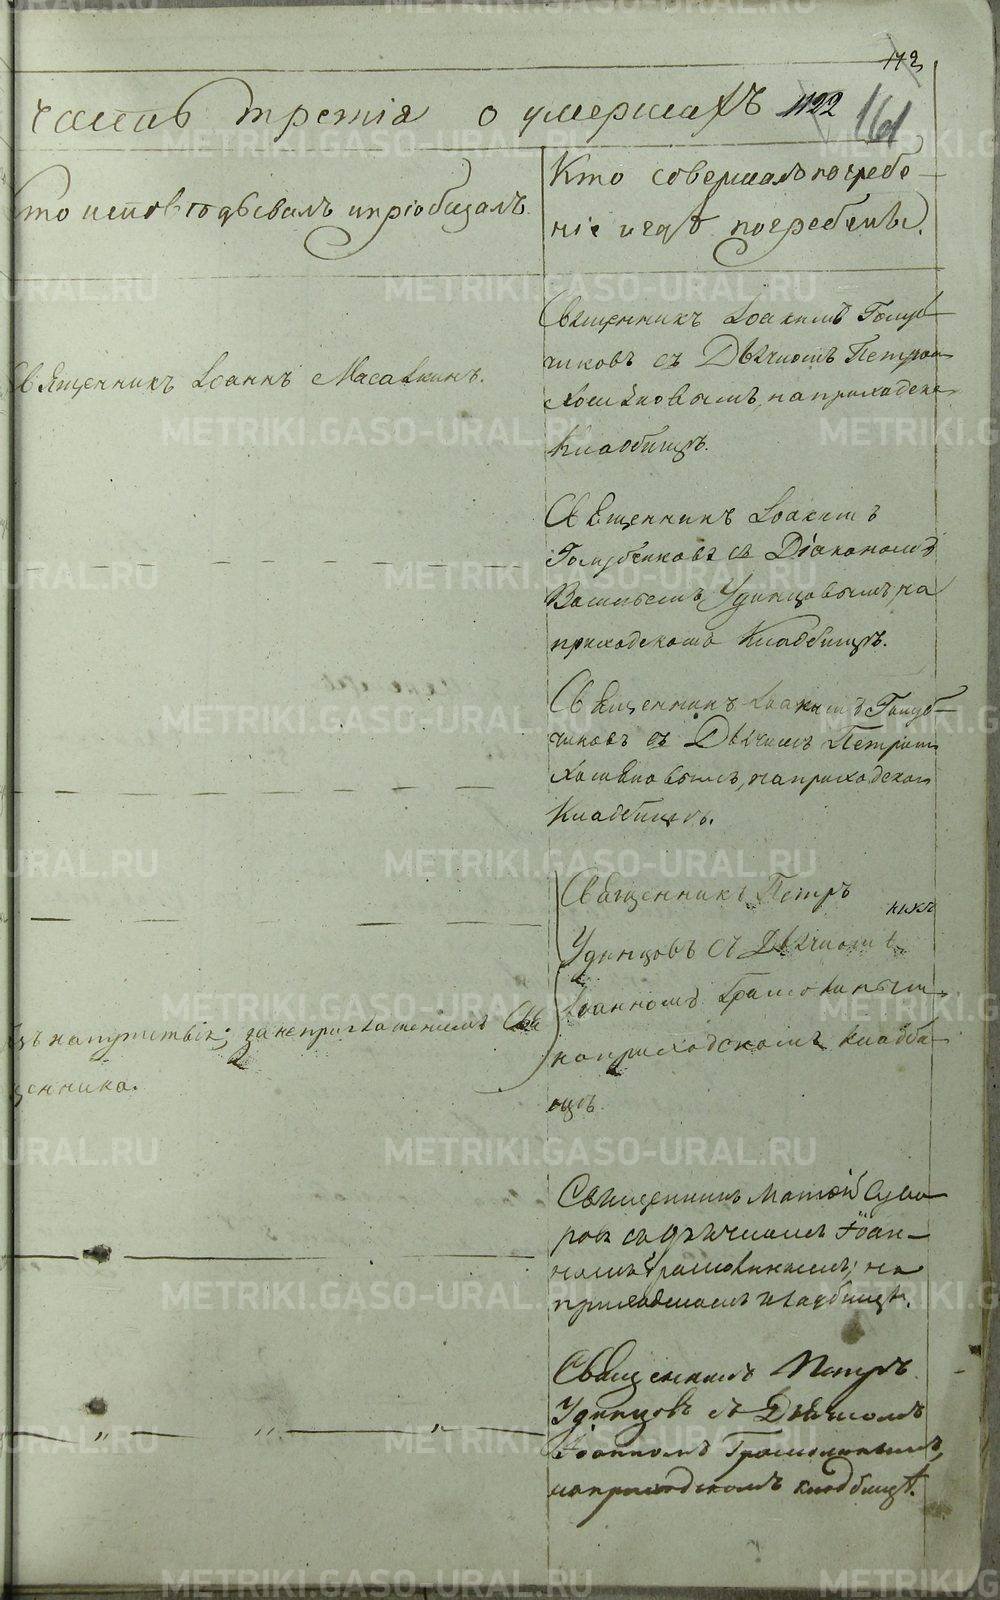 172
часть третія о умершихъ 1122 161
Кто исповѣдывалъ и пріобщалъ.
Кто совершалъ погребе-
ніе и гдѣ погребены.
Священникъ Іоаннъ Масалкинъ.
Священникъ Іоакимъ Голуб-
чиковъ съ Дьячкомъ Петромъ
на приходском
Кладбищѣ.
Священникъ Іоакимъ
Голубчиковъ съ Діакономъ
Васильемъ Удинцовымъ, на
приходскомъ Кладбищѣ.
Священникъ Іоакимъ Голуб-
чиковъ съ Дьячкомъ Петромъ
на приходском
Кладбищѣ.
Священникъ Петръ
Удинцовъ съ Дьячкомъ
Іоанномъ
на приходскомъ кладби-
щѣ
безъ напутствія; за неприглашеніемъ Свя
щенника.
Священникъ Матѳій Суво
ровъ съ дьячкомъ Іоан-
номъ на
приходскомъ кладбищѣ.
Священникъ Петръ
Удинцовъ съ Дьячкомъ
Іоанномъ
на приходскомъ кладбищѣ.
METRIKI.GASO-URAL.RU